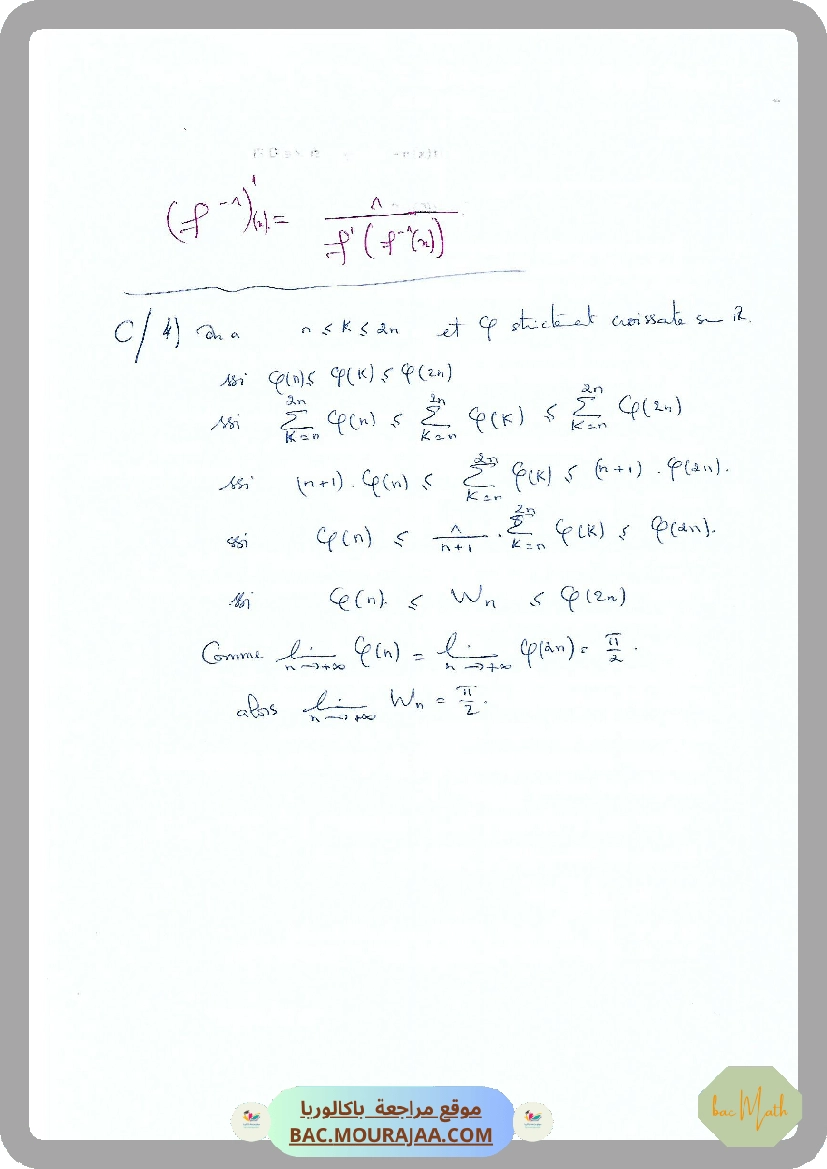 (f⁻¹)'(x) = 1 / f'(f⁻¹(x))
C/ 4) On a n ≤ K ≤ 2n et φ strictemt croissate su ℝ.
ssi φ(n) ≤ φ(K) ≤ φ(2n)
ssi ∑_{K=n}^{2n} φ(n) ≤ ∑_{K=n}^{2n} φ(K) ≤ ∑_{K=n}^{2n} φ(2n)
ssi (n+1).φ(n) ≤ ∑_{K=n}^{2n} φ(K) ≤ (n+1).φ(2n).
ssi φ(n) ≤ 1/(n+1) . ∑_{K=n}^{2n} φ(K) ≤ φ(2n).
ssi φ(n). ≤ Wn ≤ φ(2n)
Comme lim_{n→+∞} φ(n) = lim_{n→+∞} φ(2n) = π/2.
alors lim_{n→+∞} Wn = π/2.
موقع مراجعة باكالوريا
BAC.MOURAJAA.COM
bac Math